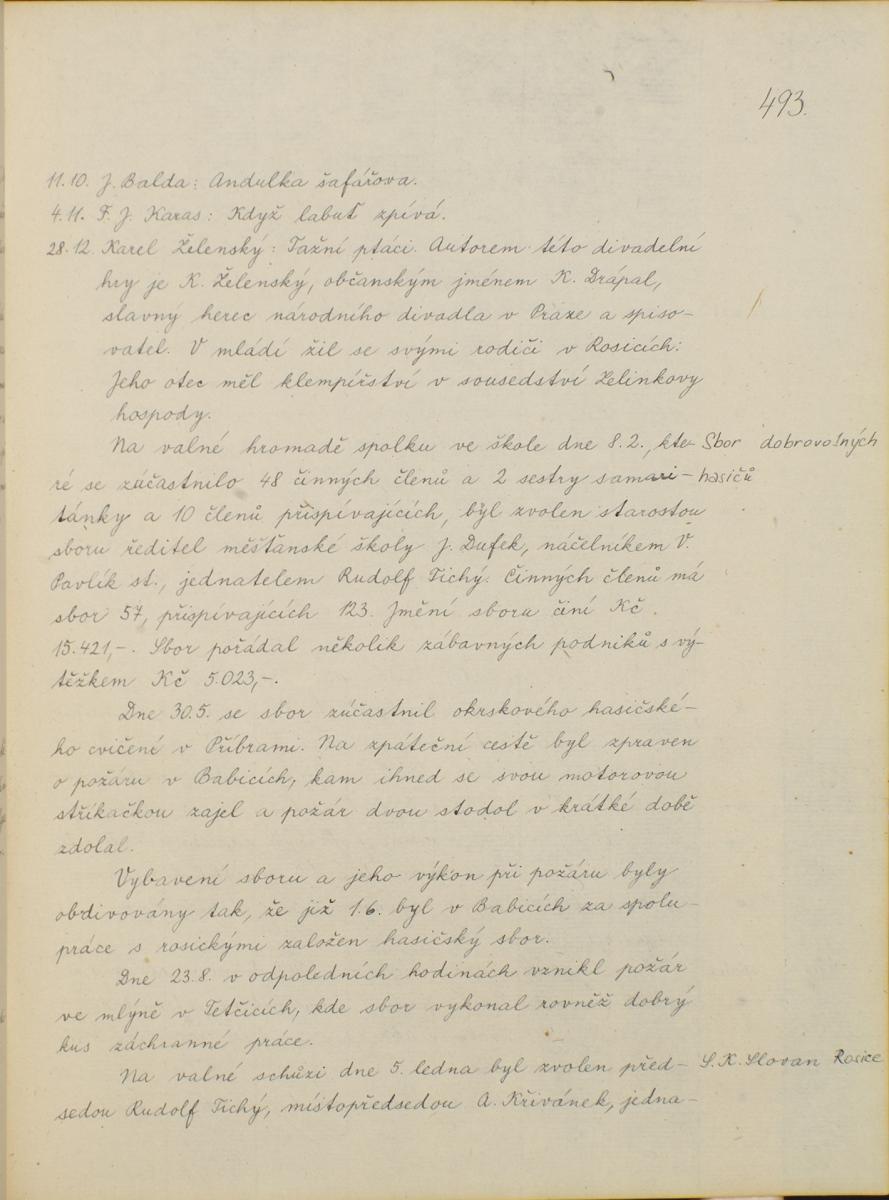 493.
11.10. J. Balda: Andulka šafářova.
4.11. F. J. Karas: Když labuť zpívá.
28.12. Karel Želenský: Tažní ptáci. Autorem této divadelní
hry je K. Želenský, občanským jménem K. Drápal,
slavný herec národního divadla v Praze a spiso-
vatel. V mládí žil se svými rodiči v Rosicích:
Jeho otec měl klempířství v sousedství Zelinkovy
hospody.
Na valné hromadě spolku ve škole dne 8.2., kte- Sbor dobrovolných
ré se zúčastnilo 48 činných členů a 2 sestry samari- hasičů
tánky a 10 členů přispívajících, byl zvolen starostou
sboru ředitel měšťanské školy J. Dufek, náčelníkem V.
Pavlík st., jednatelem Rudolf Tichý. Činných členů má
sbor 57, přispívajících 123. Jmění sboru činí Kč.
15.421,-. Sbor pořádal několik zábavných podniků s vý-
těžkem Kč 5.023,-.
Dne 30.5. se sbor zúčastnil okrskového hasičské-
ho cvičení v Příbrami. Na zpáteční cestě byl zpraven
o požáru v Babicích, kam ihned se svou motorovou
stříkačkou zajel a požár dvou stodol v krátké době
zdolal.
Vybavení sboru a jeho výkon při požáru byly
obdivovány tak, že již 1.6. byl v Babicích za spolu-
práce s rosickými založen hasičský sbor.
Dne 23.8. v odpoledních hodinách vznikl požár
ve mlýně v Tetčicích, kde sbor vykonal rovněž dobrý
kus záchranné práce.
Na valné schůzi dne 5. ledna byl zvolen před- S.K. Slovan Rosice
sedou Rudolf Tichý, místopředsedou A. Křivánek, jedna-